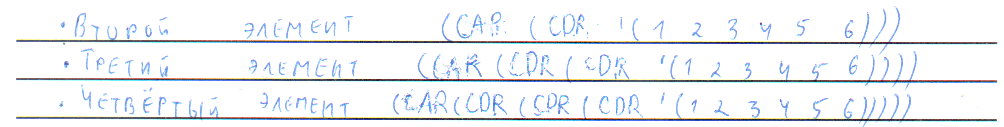 · Второй элемент (CAR (CDR '(1 2 3 4 5 6)))
· Третий элемент (CAR (CDR (CDR '(1 2 3 4 5 6))))
· Четвёртый элемент (CAR(CDR (CDR (CDR '(1 2 3 4 5 6)))))